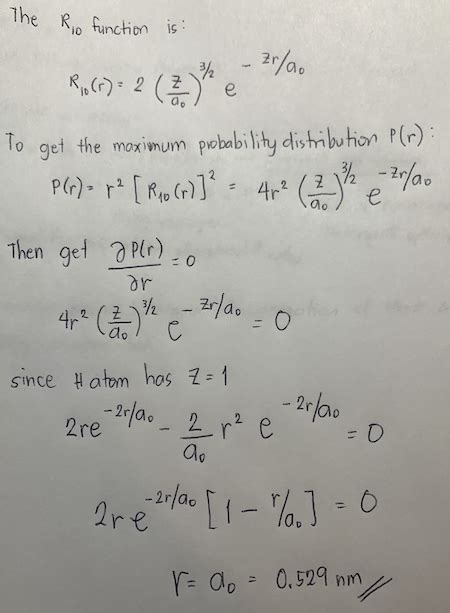 The R₁₀ function is:
R₁₀(r) = 2 (Z/a₀)^(3/2) e^(-Zr/a₀)
To get the maximum probability distribution P(r):
P(r) = r² [R₁₀(r)]² = 4r² (Z/a₀)^(3/2) e^(-Zr/a₀)
Then get ∂P(r)/∂r = 0
4r² (Z/a₀)^(3/2) e^(-Zr/a₀) = 0
since H atom has Z = 1
2re^(-2r/a₀) - 2/a₀ r² e^(-2r/a₀) = 0
2re^(-2r/a₀) [1 - r/a₀] = 0
r = a₀ = 0.529 nm